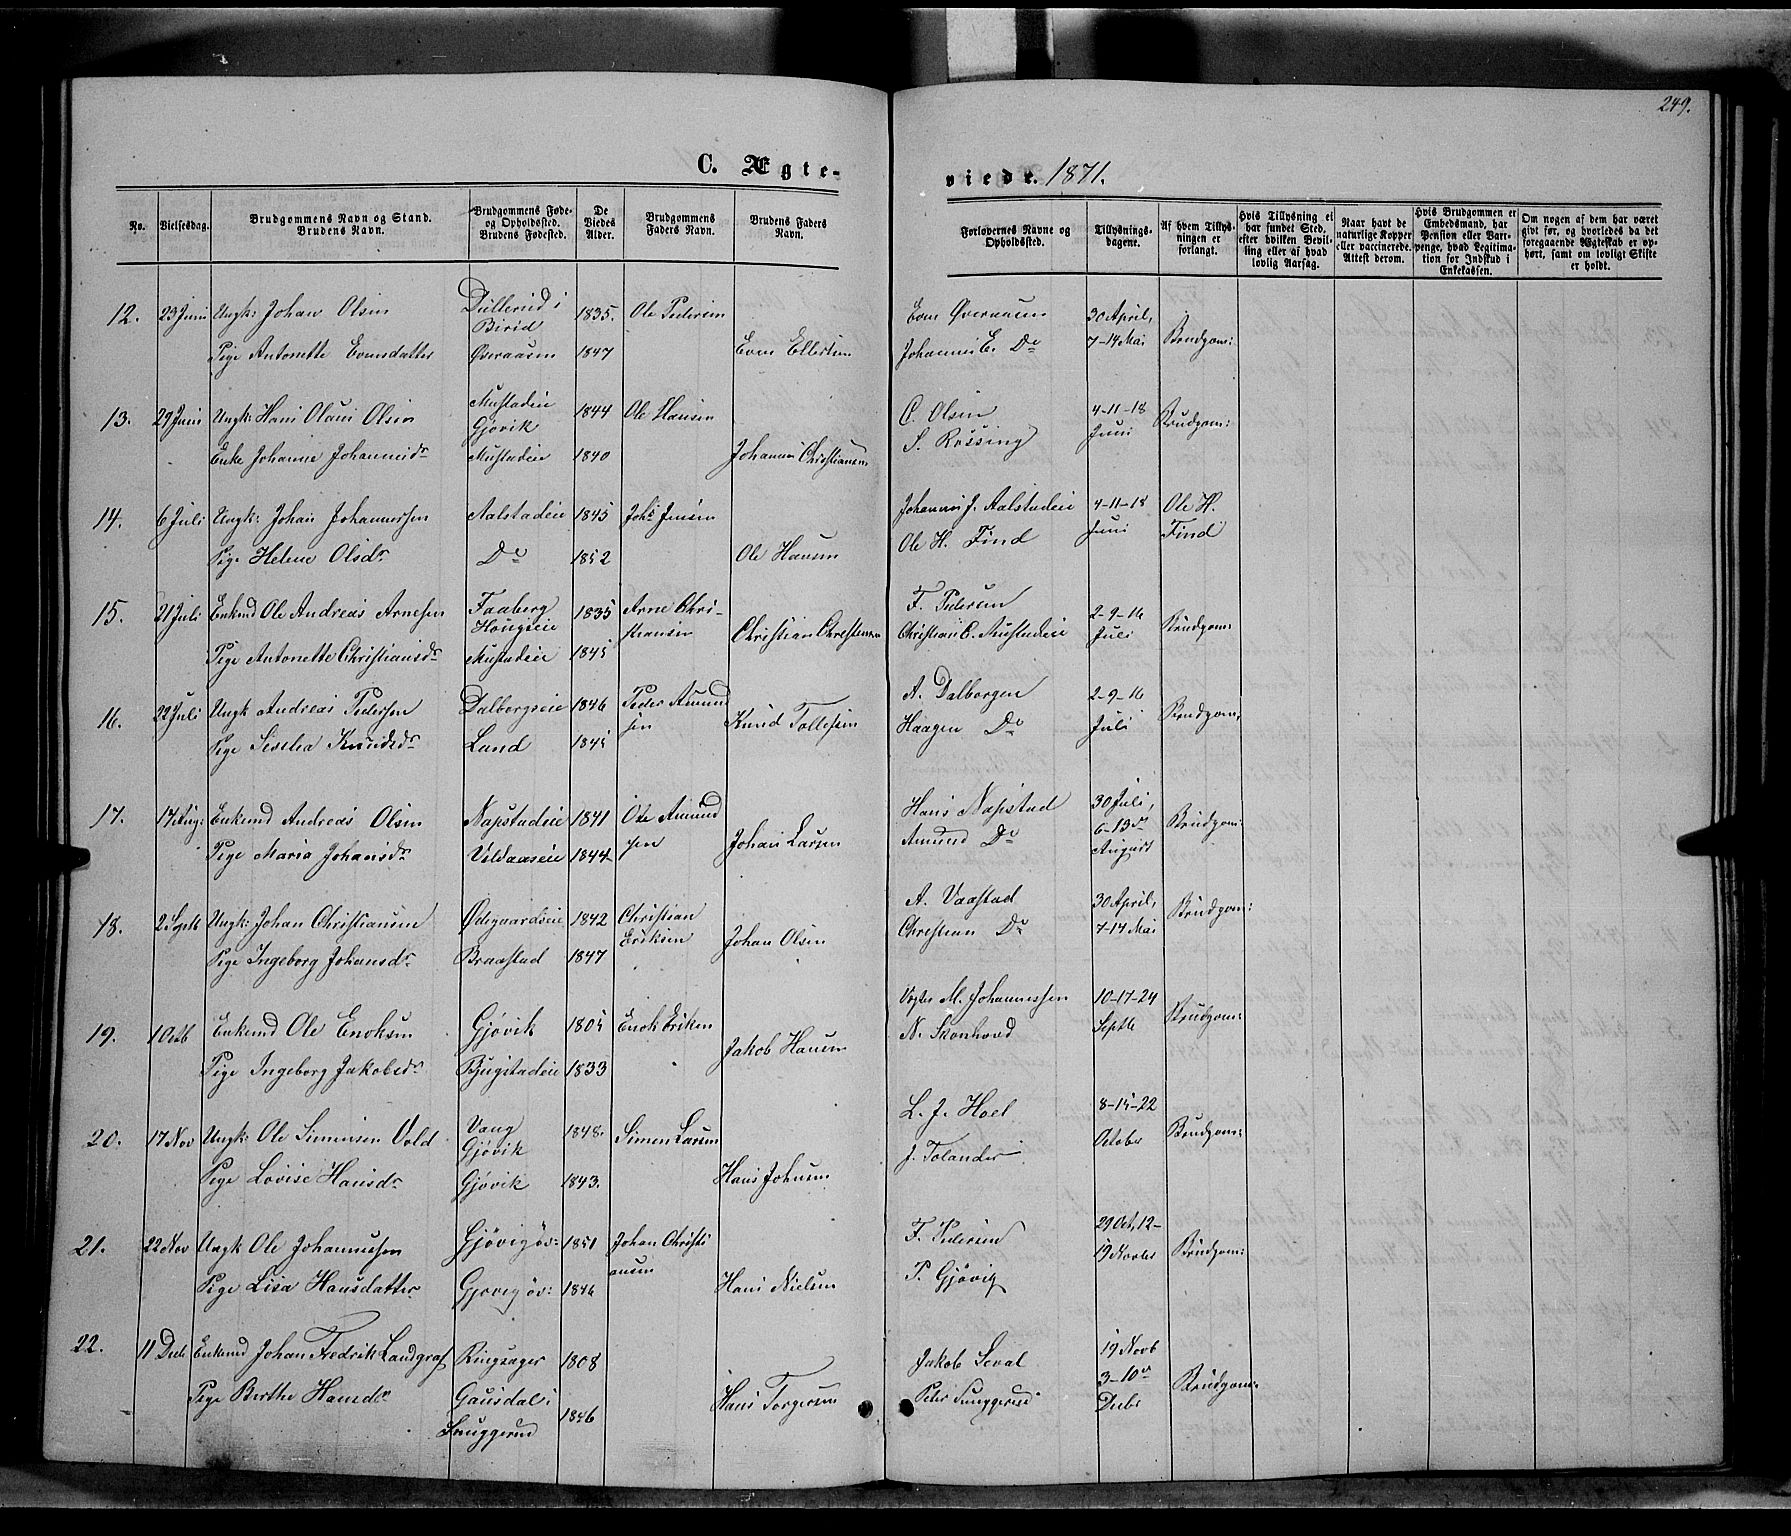 249.
C. Ægte-
viede. 1871.
No.
Vielsesdag.
Brudgommens Navn og Stand.
Brudens Navn.
Brudgommens Føde-
og Opholdsted.
Brudens Fødested.
De
Viedes
Alder.
Brudgommens
Faders Navn.
Brudens Faders
Navn.
Forlovernes Navne og
Opholdssted.
Tillysnings-
dagene.
Af hvem Tillys-
ningen er
forlangt.
Hvis Tillysning ei
har fundet Sted,
efter hvilken Bevil-
ling eller af hvad
lovlig Aarsag.
Naar havt de
naturlige Kopper
eller vaccinerede.
Attest derom.
Hvis Brudgommen er
Embedsmand, har
Pension eller Var-
penge, hvad Legitima-
tion for Indskud i
Enkekassen.
Om nogen af dem har været
gift før, og hvorledes da det
foregaaende Ægteskab er op-
hørt, samt om lovligt Skifte
er holdt.
12. 23 Juni Ungk: Johan Olsen Dullerud i Birid 1835. Ole Pedersen
Pige Antonette Evensdatter Øveraasen 1847 Even Ellertsen
Even Øveraasen 30 April,
Johannes E. Do 7-14 Mai Brudgom:
13. 29 Juni Ungk: Hans Olaus Olsen Mustadeie Gjøvik 1844 Ole Hansen
Enke Johanne Johannesdr Mustadeie 1840 Johannes Christiansen
C. Olsen 4-11-18
S. Røssing Juni Brudgom:
14. 6 Juli Ungk: Johan Johannessen Aalstadeie 1845 Johs Jensen
Pige Helene Olsdr Do 1852 Ole Hansen
Johannes J. Aalstadeie 4-11-18 Ole H.
Ole H. Find Juni Find
15. 21 Juli Enkemd Ole Andreas Arnesen Faaberg Hougseie 1835 Arne Chri-
stiansen
Pige Antonette Christiansdr Mustadeie 1845 Christian Christensen
F. Pedersen 2-9-16
Christian C. Mustadeie Juli Brudgom:
16. 22 Juli Ungk Andreas Pedersen Dalborgseie 1846 Peder Amund
sen
Pige Siselia Knudsdr Land 1845 Knud Tollefsen
A. Dalborgen 2-9-16
Haagen Do Juli Brudgom:
17. 14 Aug: Enkemd Andreas Olsen Napstadeie 1841 Ole Amund
sen
Pige Maria Johansdr Veldaaseie 1844 Johan Larsen
Hans Napstad 30 Juli,
Amund Do 6-13de August Brudgom:
18. 2 Septb Ungk: Johan Christiansen Ødegaardseie 1842 Christian
Eriksen
Pige Ingeborg Johansdr Braastad 1847 Johan Olsen
A. Vaastad 30 April,
Christian Do 7-14 Mai Brudgom:
19. 1 Octb Enkemd Ole Enoksen Gjøvik 1805 Enok Eriksen
Pige Ingeborg Jakobsdr Bjugstadeie 1833 Jakob Hansen
Vogter M. Johannessen 10-17-24
N. Skonhovd Septb Brudgom:
20. 17 Nov Ungk: Ole Simensen Vold Vang Gjøvik 1848. Simen Larsen
Pige Lovise Hansdr Gjøvik 1843. Hans Johnsen
L. J. Hoel 8-15-22
J. Tolander October Brudgom:
21. 22 Nov Ungk Ole Johannessen Gjøvigøv: 1851 Johan Christi
ansen
Pige Lisa Hansdatter Gjøvigøv: 1846 Hans Nielsen
F. Pedersen 29 Oct, 12-
P. Gjøvig 19 Novbr Brudgom:
22. 11 Decb Enkemd Johan Fredrik Landgraf Ringsager 1808
Pige Berthe Hansdr Gausdal i 1846 Hans Torgersen
Jakob Seval 19 Novb
Peter 3-10de Decbr Brudgom: